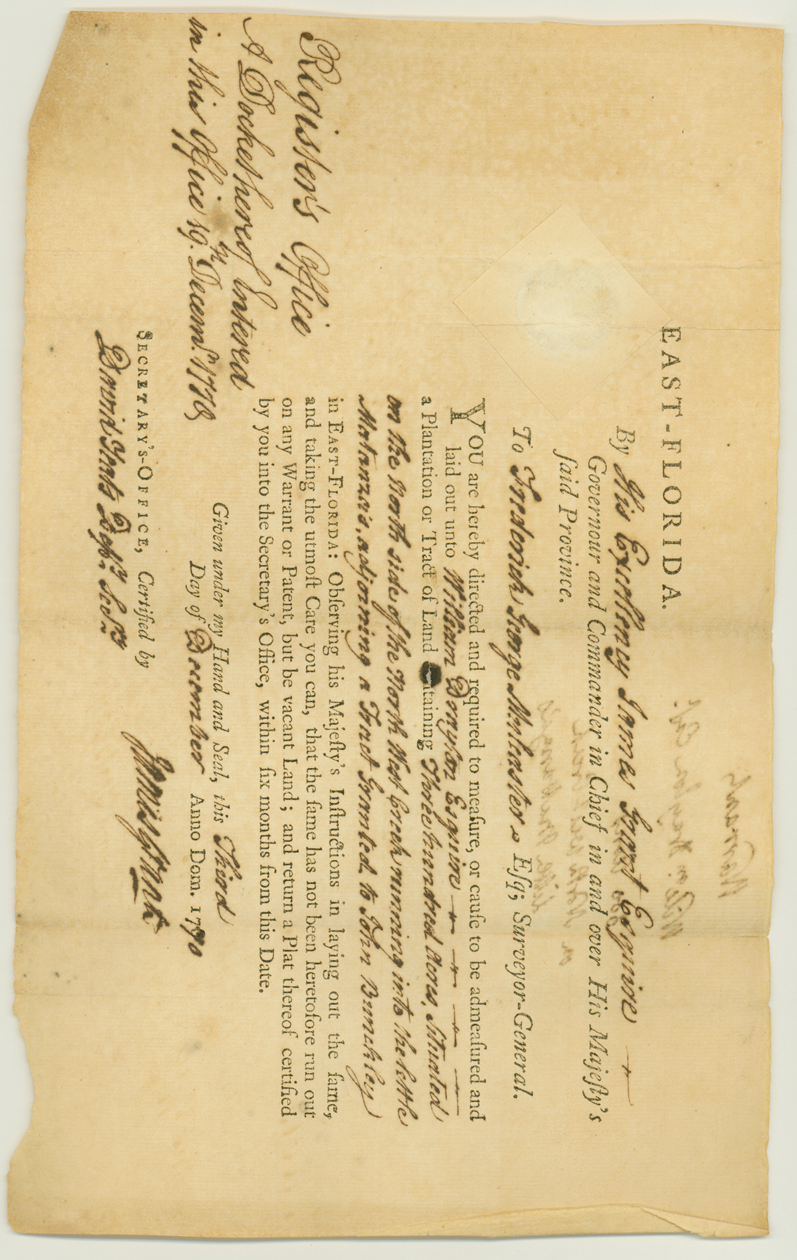 EAST-FLORIDA.
By His Excellency James Grant Esquire
Governour and Commander in Chief in and over His Majeſty's
ſaid Province.
To Frederick George Mulcaster Eſq; Surveyor-General.
YOU are hereby directed and required to meaſure, or cauſe to be admeaſured and
laid out unto William Drayton Esquire
a Plantation or Tract of Land taining Three hundred Acres Situated
on the North side of the North West Creek running into the little
Matanzas, adjoining a Tract Granted to John Bunkley
in EAST-FLORIDA: Obſerving his Majeſty's Inſtructions in laying out the ſame,
and taking the utmoſt Care you can, that the ſame has not been heretofore run out
on any Warrant or Patent, but be vacant Land; and return a Plat thereof certified
by you into the Secretary's Office, within ſix months from this Date.
Given under my Hand and Seal, this Third
Day of December Anno Dom. 1770
James Grant
SECRETARY's-OFFICE, Certified by
David Yeats Depy. Secry.
Register's Office
A Docket hereof Entered
in this Office 19th. Decemr. 1770